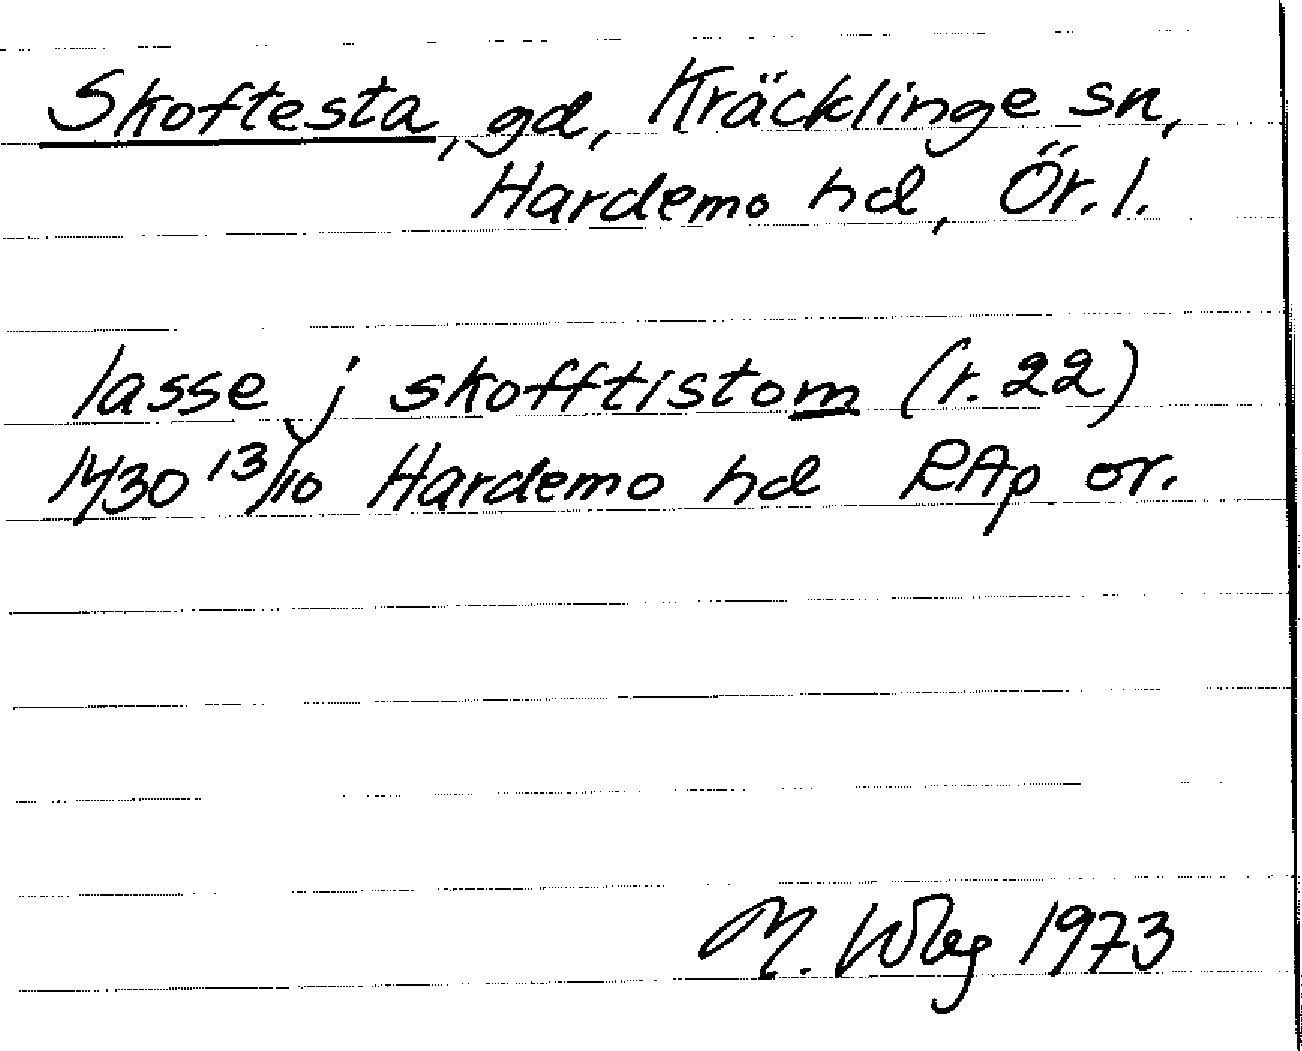 Skoftesta, gd, Kräcklinge sn,
Hardemo hd, Ör. l.
lasse j skofftistom (r. 22)
1430 13/10 Hardemo hd RAp or.
M. Wbg 1973